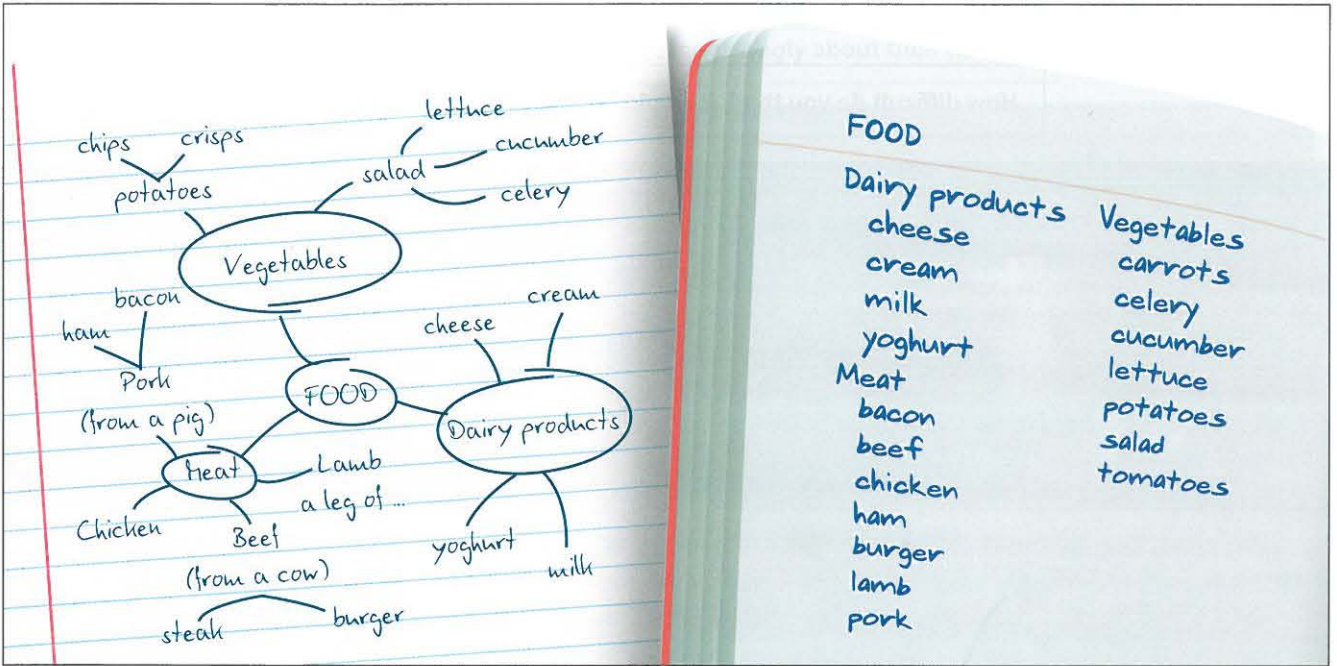 chips crisps
potatoes
lettuce
salad cucumber
celery
Vegetables
bacon
ham
Pork
(from a pig)
FOOD
cheese
cream
Dairy products
yoghurt
milk
Meat
Lamb
a leg of ...
Chicken
Beef
(from a cow)
steak burger
FOOD
Dairy products
cheese
cream
milk
yoghurt
Meat
bacon
beef
chicken
ham
burger
lamb
pork
Vegetables
carrots
celery
cucumber
lettuce
potatoes
salad
tomatoes